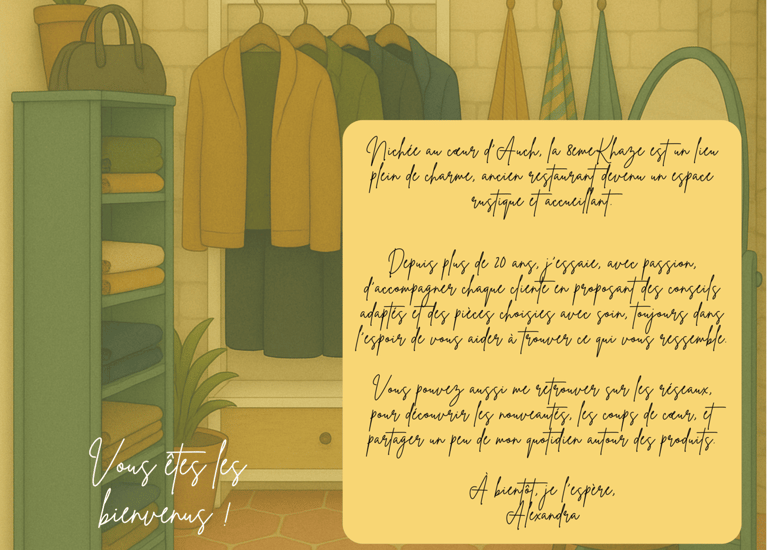 Nichée au cœur d'Auch, la 8emeKhaze est un lieu
plein de charme, ancien restaurant devenu un espace
rustique et accueillant.
Depuis plus de 20 ans, j'essaie, avec passion,
d'accompagner chaque cliente en proposant des conseils
adaptés et des pièces choisies avec soin, toujours dans
l'espoir de vous aider à trouver ce qui vous ressemble.
Vous pouvez aussi me retrouver sur les réseaux,
pour découvrir les nouveautés, les coups de cœur, et
partager un peu de mon quotidien autour des produits.
À bientôt, je l'espère,
Alexandra
Vous êtes les
bienvenus !